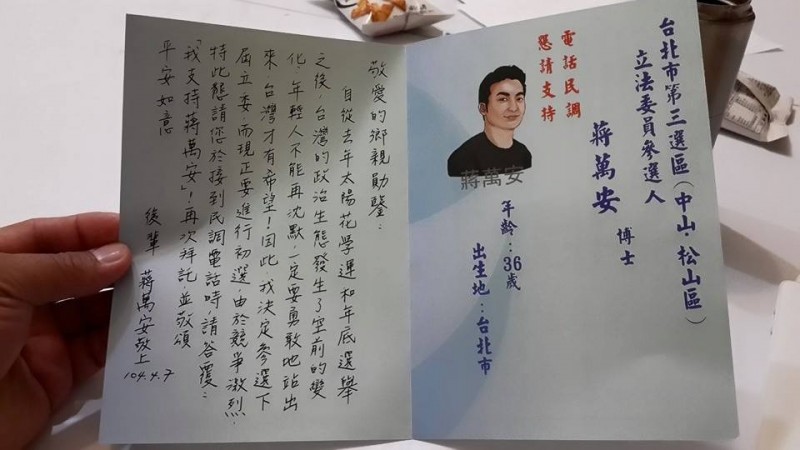 台北市第三選區(中山・松山區)
立法委員參選人
蔣萬安 博士
電話民調
懇請支持
蔣萬安
年齡：36歲
出生地：台北市
敬愛的鄉親勛鑒：
自從去年太陽花學運和年底選舉
之後，台灣的政治生態發生了空前的變
化，年輕人不能再沈默，一定要勇敢地站出
來，台灣才有希望！因此，我決定參選下
屆立委，而現正要進行初選，由於競爭激烈，
特此懇請您於接到民調電話時，請答覆：
「我支持蔣萬安」！再次拜託並敬頌
平安如意
後輩 蔣萬安敬上
104.4.7